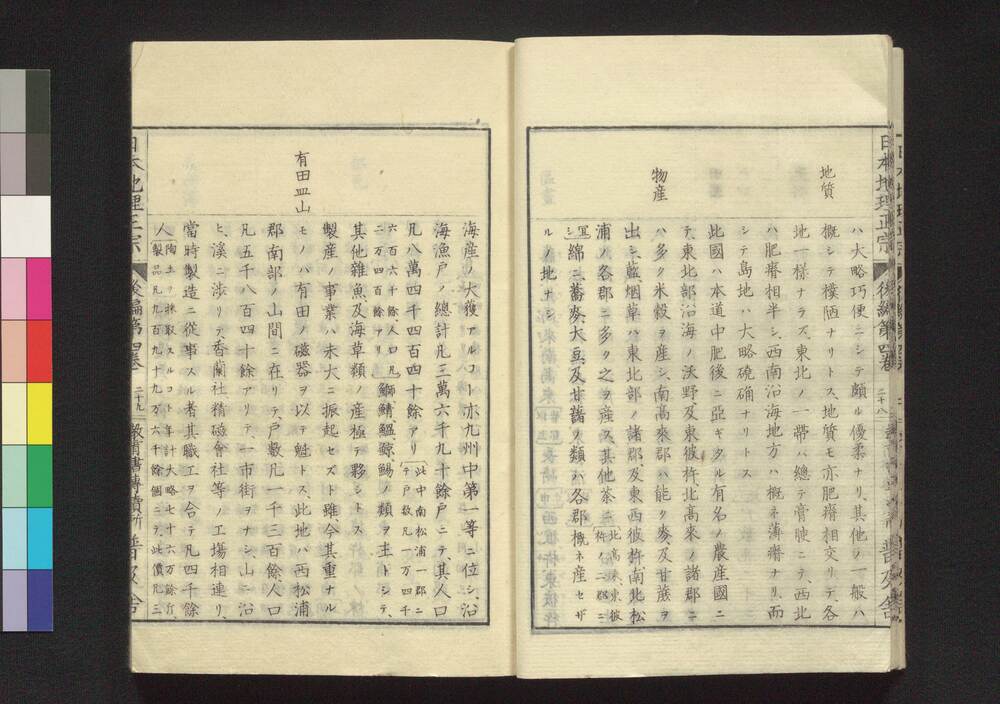 日本地理正宗
後編第四卷
二十八
普及舍
地質
ハ大略巧便ニシテ頗ル優柔ナリ、其他ノ一般ハ
概シテ樸陋ナリトス、地質モ亦肥瘠相交リテ、各
地一樣ナラズ、東北ノ一帶ハ總テ膏腴ニテ、西北
ハ肥瘠相半シ、西南沿海地方ハ概ネ薄瘠ナリ、而
シテ島地ハ大略磽确ナリトス
物産
此國ハ本道中肥後ニ亞ギタル有名ノ農産國ニ
テ、東北部沿海ノ沃野、及東彼杵、北高來ノ諸郡ニ
ハ多ク米穀ヲ産シ、南高來郡ハ能ク麥、及甘蔗ヲ
出シ、藍、烟草ハ東北部ノ諸郡、及東西彼杵、南北松
浦ノ各郡ニ多ク之ヲ産ス、其他茶ニ
北高來、東彼
杵ノ二郡ニ
綿ニ蕎麥、大豆、及甘藷ノ類ハ各郡概ネ産セザ
ルノ地ナシ
海産ノ大獲アルコト亦九州中第一等ニ位シ、沿
海漁戸ノ總計凡三萬六千九十餘戸ニテ、其人口
凡八萬四千四百四十餘アリ
此中南松浦一郡ニ
テ戸數凡一万四千
六百六十餘、人口凡
二万四百餘アリ
鰤、鯖、鰮、鯨、鯣ノ類ヲ主トシテ、
其他雜魚、及海草類ノ産極テ夥シトス
有田皿山
製産ノ事業ハ未大ニ振起セズト雖、今其重ナル
モノハ有田ノ磁器ヲ以テ魁トス、此地ハ西松浦
郡南部ノ山間ニ在リテ、戸數凡一千三百餘、人口
凡五千八百四十餘アリテ、一市街ヲナシ、山ニ沿
ヒ、溪ニ渉リテ、香蘭社、精磁會社等ノ工場相連リ、
當時製造ニ從事スル者其職工ヲ合テ凡四千餘
人
陶土ヲ採取スルコト年計大略七十六万餘斤、
製品凡九百九十九万六千餘個ニテ、此價凡三
日本地理正宗
後編第四卷
二十九
普及舍